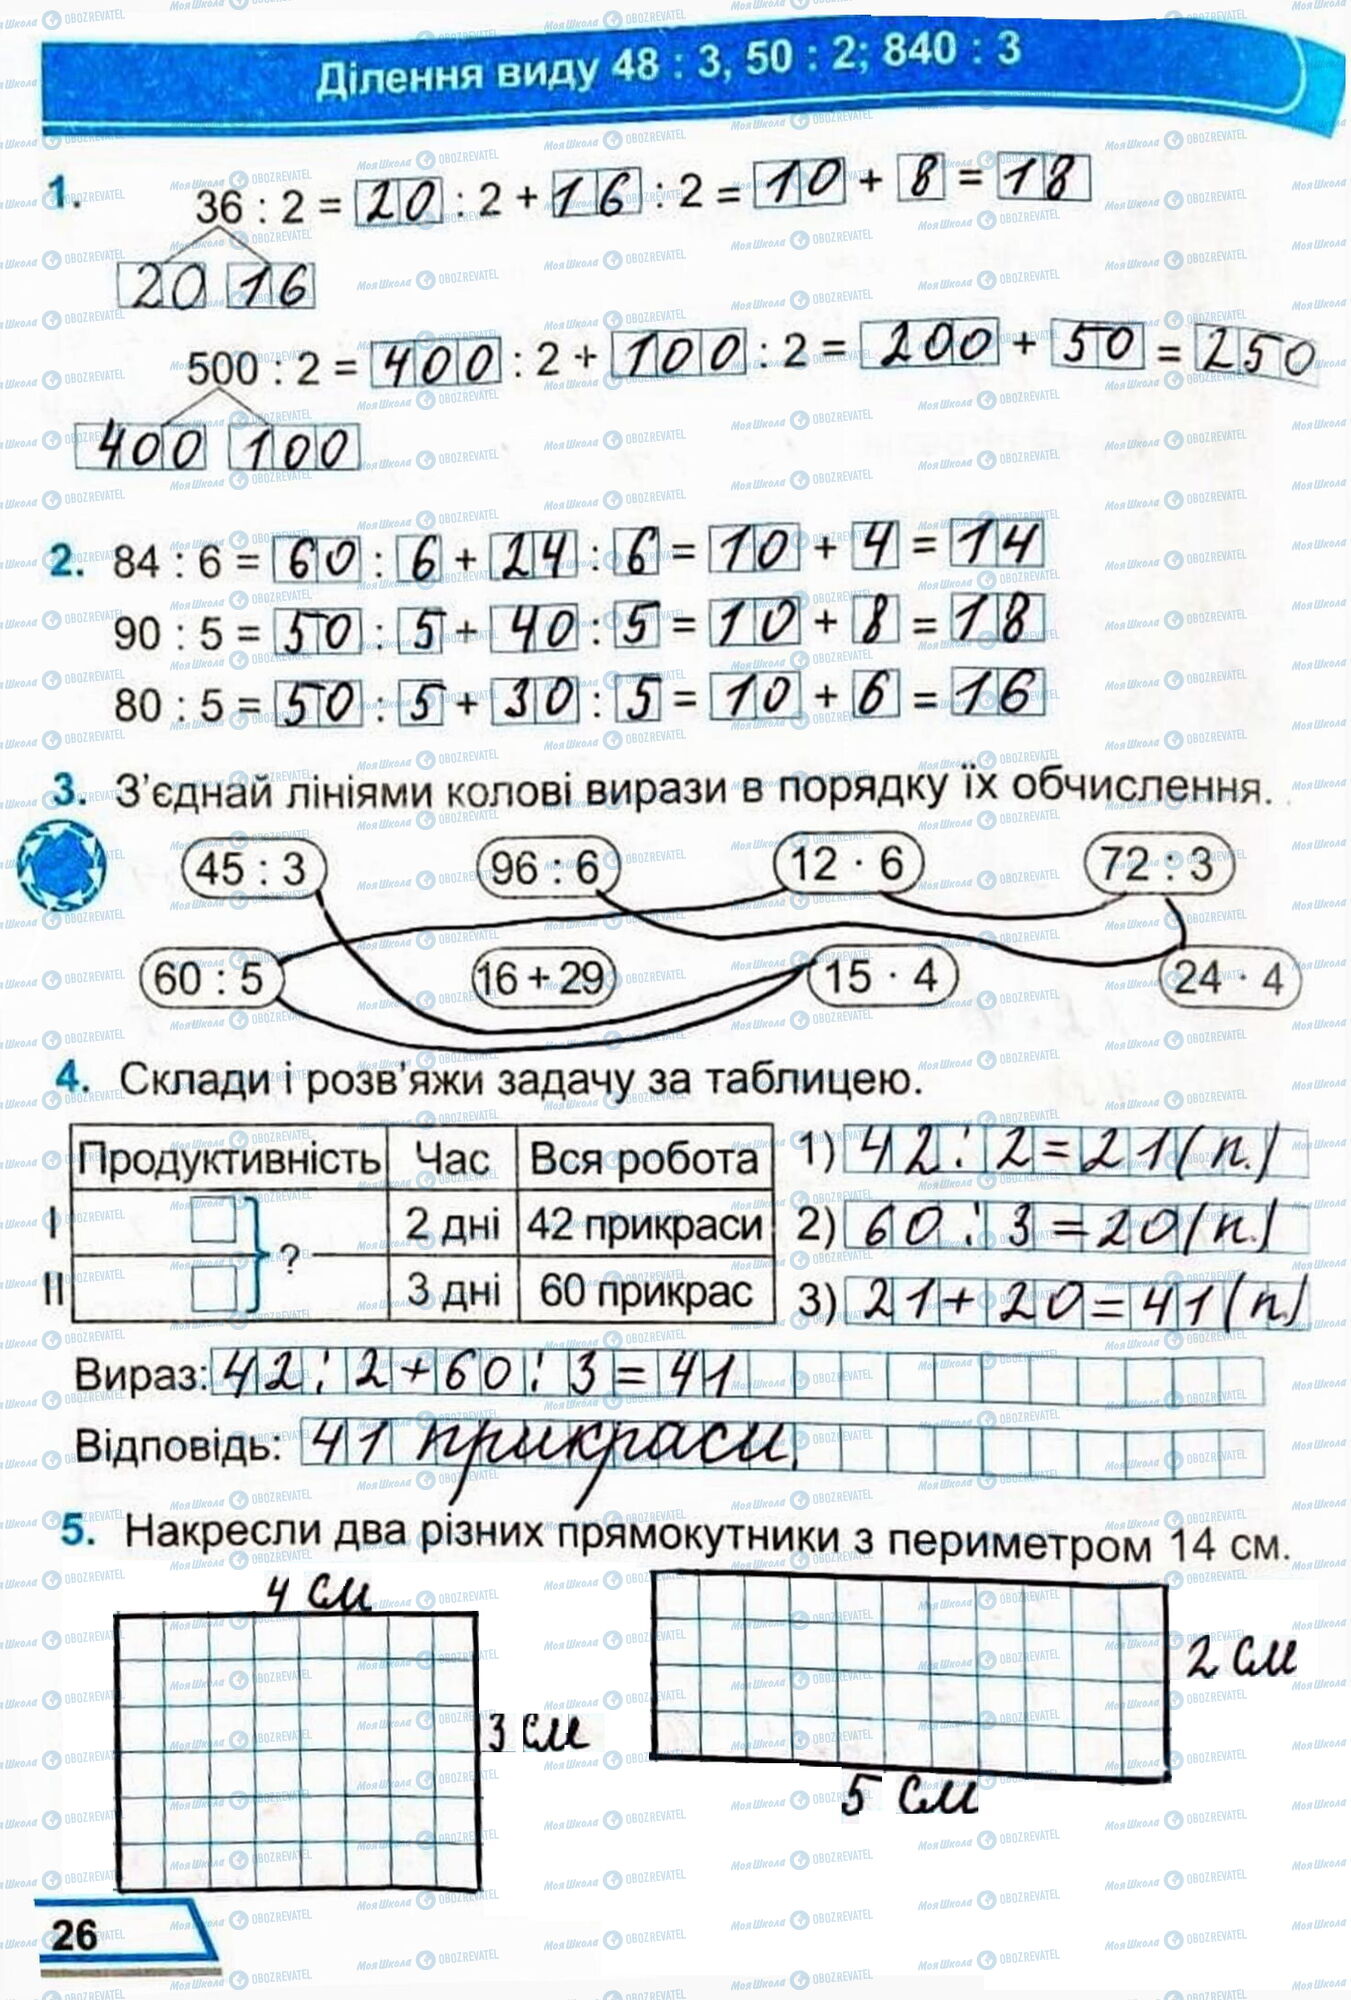 Ділення виду 48 : 3, 50 : 2; 840 : 3
1. 36 : 2 = 20 : 2 + 16 : 2 = 10 + 8 = 18
20 16
500 : 2 = 400 : 2 + 100 : 2 = 200 + 50 = 250
400 100
2. 84 : 6 = 60 : 6 + 24 : 6 = 10 + 4 = 14
90 : 5 = 50 : 5 + 40 : 5 = 10 + 8 = 18
80 : 5 = 50 : 5 + 30 : 5 = 10 + 6 = 16
3. З’єднай лініями колові вирази в порядку їх обчислення.
45 : 3 96 : 6 12 · 6 72 : 3
60 : 5 16 + 29 15 · 4 24 · 4
4. Склади і розв’яжи задачу за таблицею.
Продуктивність Час Вся робота
I 2 дні 42 прикраси
?
II 3 дні 60 прикрас
1) 42 : 2 = 21 (п.)
2) 60 : 3 = 20 (п.)
3) 21 + 20 = 41 (п)
Вираз: 42 : 2 + 60 : 3 = 41
Відповідь: 41 прикраси.
5. Накресли два різних прямокутники з периметром 14 см.
4 см
3 см
2 см
5 см
26
Моя Школа OBOZREVATEL